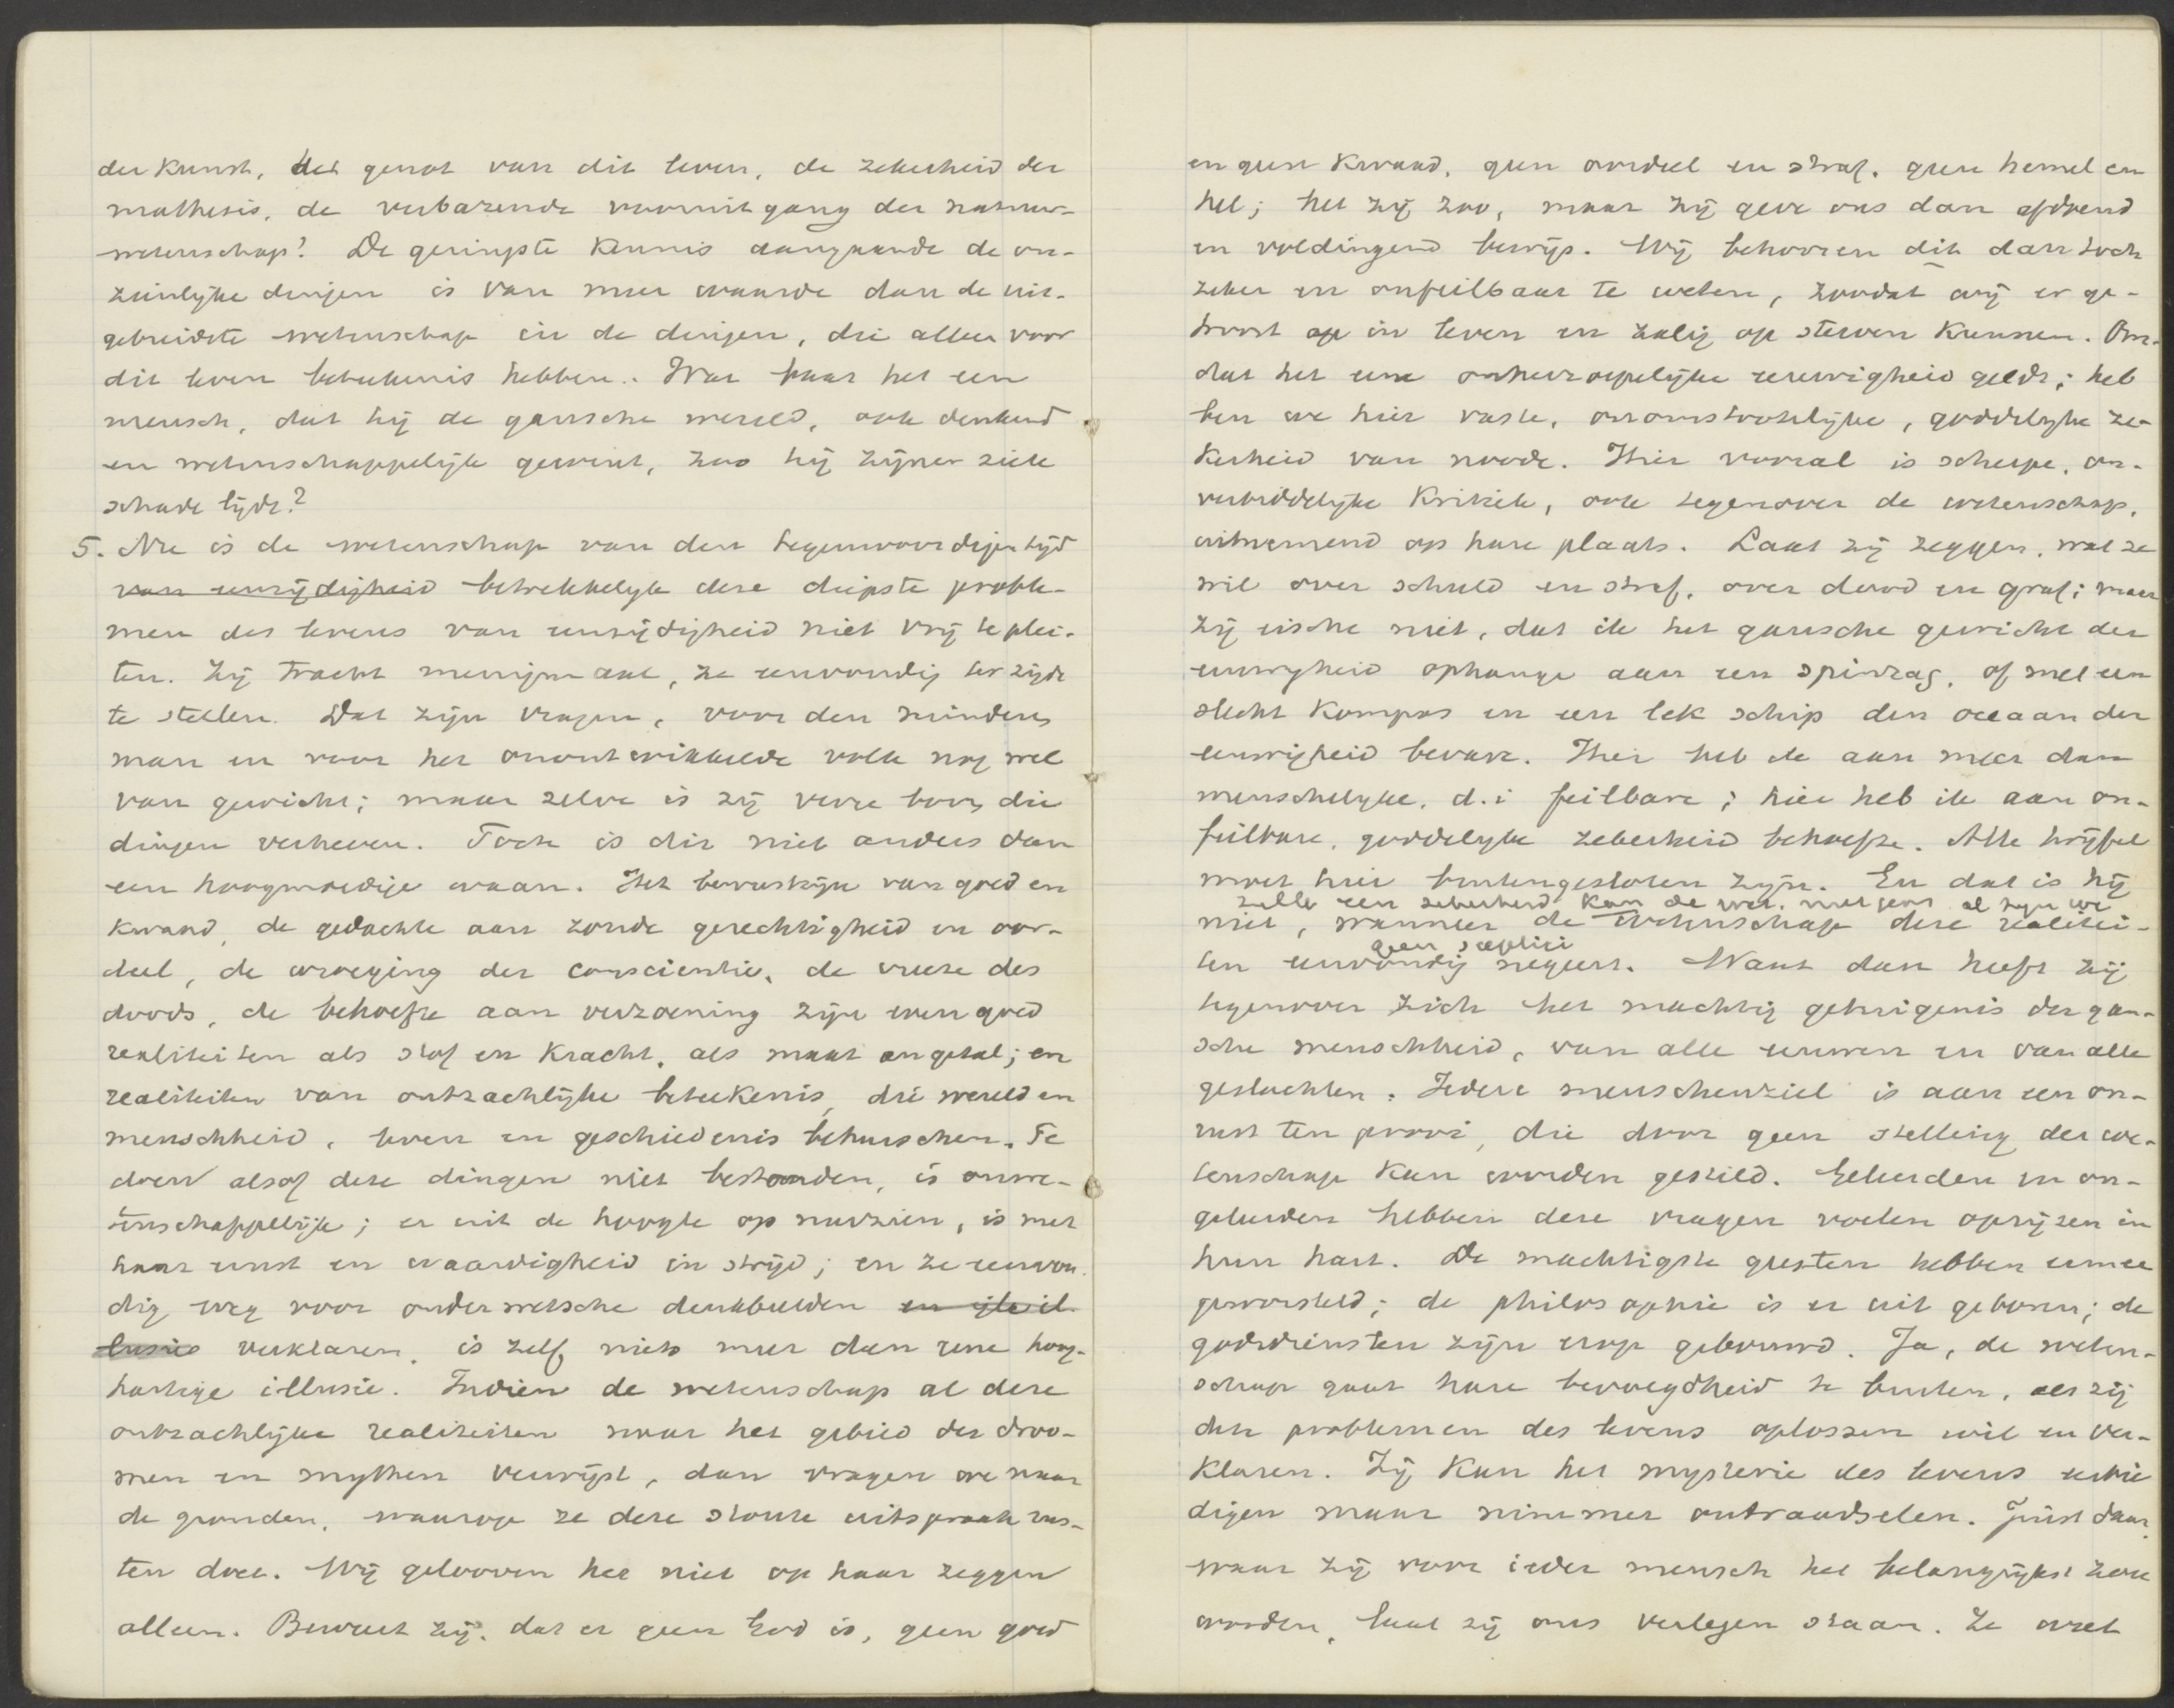 der kunst, het genot van dit leven, de zekerheid der
mathesis, de verbazende vooruitgang der natuur-
wetenschap? De geringste kennis aangaande de on-
zienlijke dingen is van meer waarde dan de uit-
gebreidste wetenschap in de dingen, die alleen voor
dit leven beteekenis hebben. Wat baat het een
mensch, dat hij de gansche wereld, ook denkend
en wetenschappelijk gewint, zoo hij zijner ziele
schade lijdt?
5. Nu is de wetenschap van den tegenwoordigen tijd
van eenzijdigheid betrekkelijk deze diepste proble-
men des levens van eenzijdigheid niet vrij te plei-
ten. Zij tracht menigmaal, ze eenvoudig ter zijde
te stellen. Dat zijn vragen, voor den minderen
man en voor het onontwikkelde volk nog wel
van gewicht; maar zelve is zij verre boven die
dingen verheven. Toch is dit niet anders dan
een hoogmoedige waan. Het bewustzijn van goed en
kwaad, de gedachte aan zonde gerechtigheid en oor-
deel, de wroeging der conscientie, de vreeze des
doods, de behoefte aan verzoening zijn even goed
realiteiten als stof en kracht, als maat en getal; en
realiteiten van ontzachlijke beteekenis, die wereld en
menschheid, leven en geschiedenis beheerschen. Te
doen alsof deze dingen niet bestonden, is onwe-
tenschappelijk; er uit de hoogte op neerzien, is met
haar ernst en waardigheid in strijd; en ze eenvou-
dig weg voor onderwetsche denkbeelden en ijle il-
lusies verklaren, is zelf niets meer dan eene hoog-
hartige illusie. Indien de wetenschap al deze
ontzachlijke realiteiten naar het gebied der droo-
men en mythen verwijst, dan vragen we naar
de gronden, waarop ze deze stoute uitspraak rus-
ten doet. Wij gelooven het niet op haar zeggen
alleen. Bewijst zij, dat er geen God is, geen goed
en geen kwaad, geen oordeel en straf, geen hemel en
hel; het zij zoo, maar zij geve ons dan afdoend
en voldingend bewijs. Wij behooren dit dan toch
zeker en onfeilbaar te weten, zoodat wij er ge-
troost op in leven en zalig op sterven kunnen. Om-
dat het eene onherroepelijke eeuwigheid geldt; heb
ben we hier vaste, onomstootelijke, goddelijke ze-
kerheid van noode. Hier vooral is scherpe, on-
verbiddelijke kritiek, ook tegenover de wetenschap,
uitnemend op hare plaats. Laat zij zeggen, wat ze
wil over schuld en straf, over dood en graf; maar
zij eische niet, dat ik het gansche gewicht der
eeuwigheid ophange aan een spinrag, of met een
slecht kompas en een lek schip den oceaan der
eeuwigheid bevare. Hier heb ik aan meer dan
menschelijke, d.i feilbare; hier heb ik aan on-
feilbare, goddelijke zekerheid behoefte. Alle twijfel
moet hier buitengesloten zijn. En dat is hij
zulk een zekerheid kan de wet. niet geven al zijn we
niet, wanneer de wetenschap deze realitei-
geen sceptici
ten eenvoudig negeert. Want dan heeft zij
tegenover zich het machtig getuigenis der gan-
sche menschheid, van alle eeuwen en van alle
geslachten. Iedere menschenziel is aan een on-
rust ten prooi, die door geen stelling der we-
tenschap kan worden gestild. Geleerden en on-
geleerden hebben deze vragen voelen oprijzen in
hun hart. De machtigste geesten hebben ermee
geworsteld; de philosophie is er uit geboren; de
godsdiensten zijn erop gebouwd. Ja, de weten-
schap gaat hare bevoegdheid te buiten, als zij
den problemen des levens oplossen wil en ver-
klaren. Zij kan het mysterie des levens eerbie
digen maar nimmer ontraadselen. Juist daar,
waar zij voor ieder mensch het belangrijkst zou
worden, laat zij ons verlegen staan. Ze weet